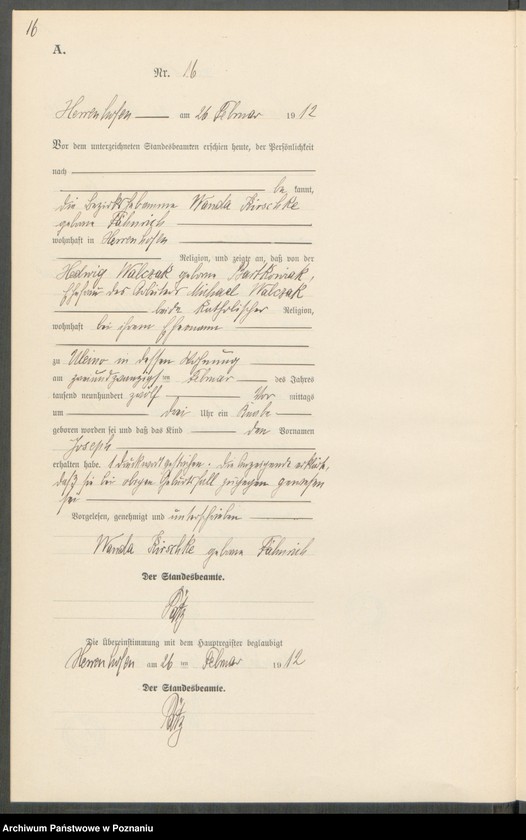 16
A.
Nr. 16
Herrenhofen am 26 Februar 1912
Vor dem unterzeichneten Standesbeamten erschien heute, der Persönlichkeit
nach
be kannt,
die Bezirkshebamme Wanda Kirschke
geborne Fähnrich
wohnhaft in Herrenhofen
Religion, und zeigte an, daß von der
Hedwig Walczak geborne Bartkowiak,
Ehefrau des Arbeiters Michael Walczak
beide katholischer Religion,
wohnhaft bei ihrem Ehemann
zu Uleino in dessen Wohnung
am zwanzigsten Februar des Jahres
tausend neunhundert zwölf Vor mittags
um drei Uhr ein Knabe
geboren worden sei und daß das Kind den Vornamen
Joseph
erhalten habe. 1 Druckwort gestrichen. Die Anzeigende erklärte,
daß sie bei obigem Geburtsfall zugegen gewesen
sei
Vorgelesen, genehmigt und unterschrieben
Wanda Kirschke geborne Fähnrich
Der Standesbeamte.
Die Übereinstimmung mit dem Hauptregister beglaubigt
Herrenhofen am 26 ten Februar 1912
Der Standesbeamte.
Archiwum Państwowe w Poznaniu